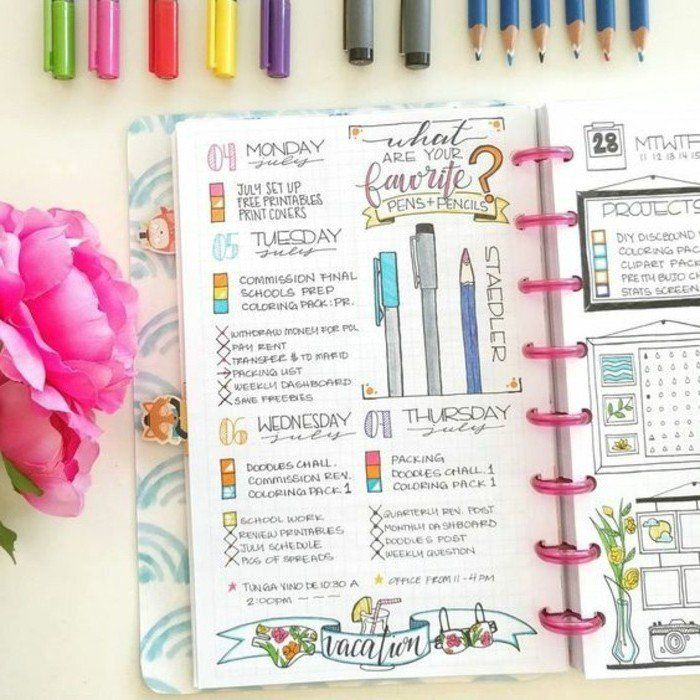 04 MONDAY
july
JULY SET UP
FREE PRINTABLES
PRINT COVERS
05 TUESDAY
july
COMMISSION FINAL
SCHOOLS PREP
COLORING PACK: PR.
WITHDRAW MONEY FOR POL
PAY RENT
TRANSFER $ TO MARID
PACKING LIST
WEEKLY DASHBOARD
SAVE FREEBIES
what
ARE YOUR
favorite ?
PENS + PENCILS
STAEDLER
06 WEDNESDAY
july
DOODLES CHALL.
COMMISSION REV.
COLORING PACK 1
SCHOOL WORK
REVIEW PRINTABLES
JULY SCHEDULE
PICS OF SPREADS
TUNGA VINO DE 10:30 A
2:00PM
07 THURSDAY
july
PACKING
DOODLES CHALL. 1
COLORING PACK 1
QUARTERLY REV. POST
MONTHLY DASHBOARD
DOODLES POST
WEEKLY QUESTION
OFFICE FROM 11-4PM
vacation
28 MTWTF
11 12 13 14 15
PROJECTS
DIY DISCBOUND
COLORING PAC
CLIPART PACK
PRETTY BUJO CH
STATS SCREEN